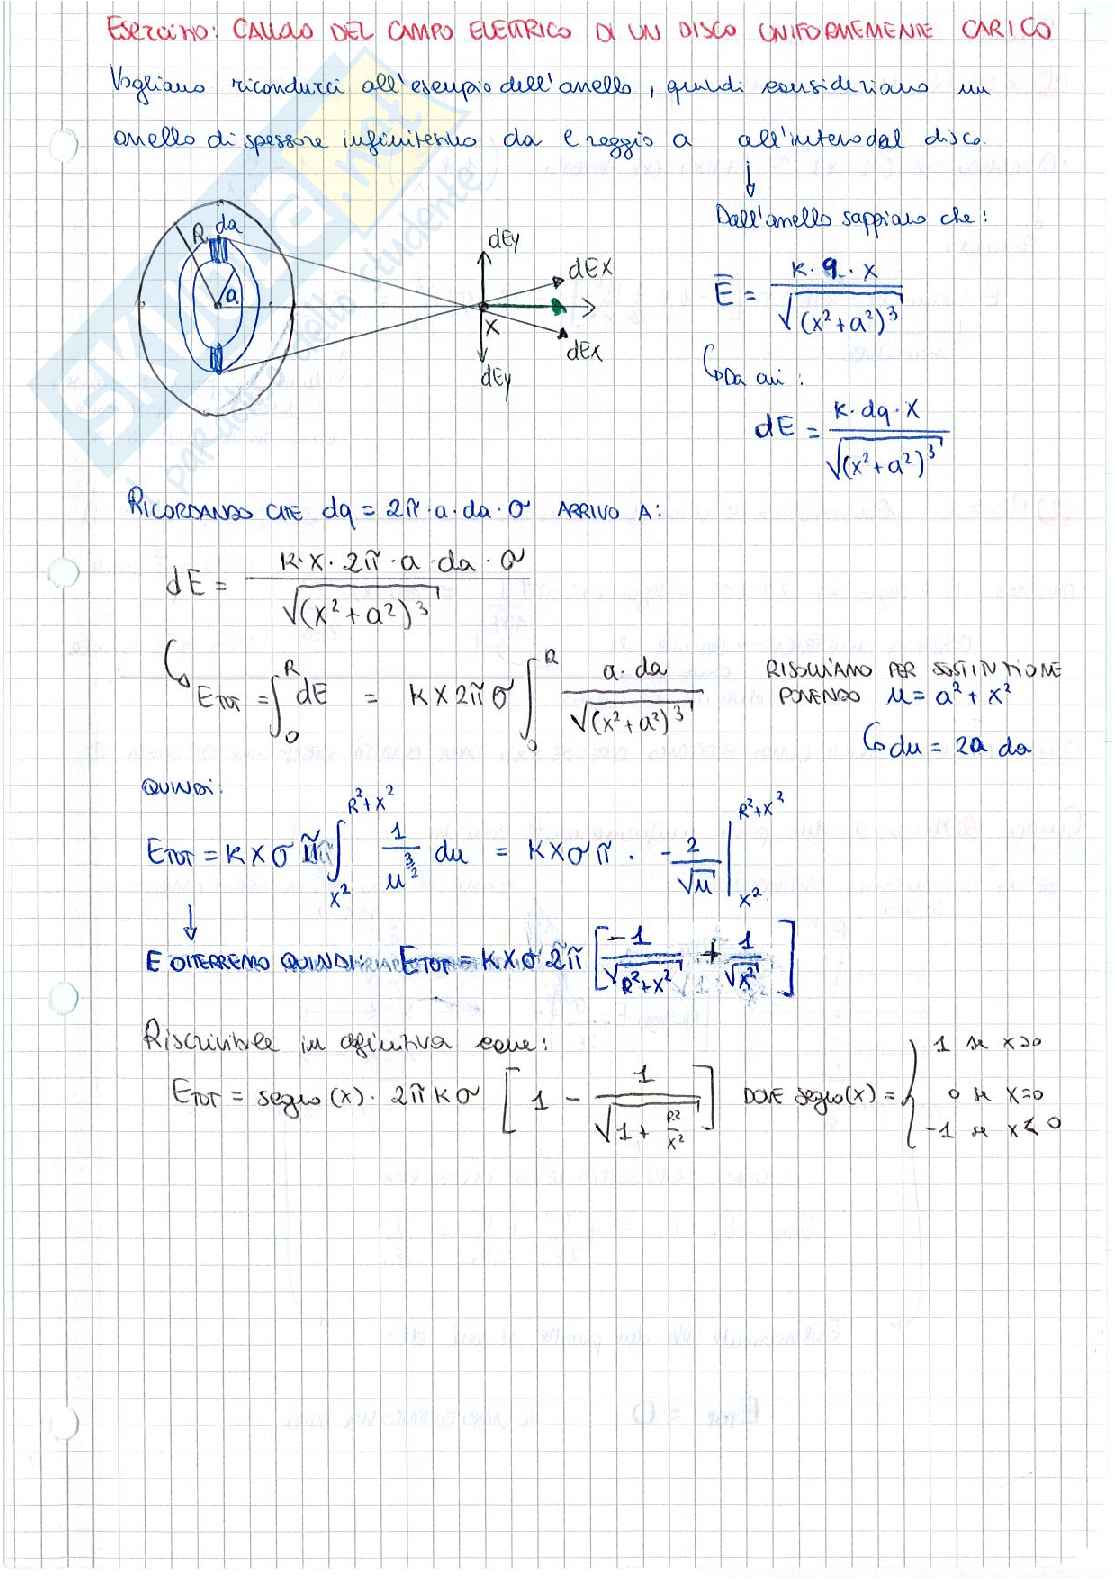 Esercizio: CALCOLO DEL CAMPO ELETTRICO DI UN DISCO UNIFORMEMENTE CARICO
Vogliamo ricondurci all'esempio dell'anello, quindi consideriamo un
anello di spessore infinitesimo da e raggio a all'interno del disco.
Dall'anello sappiamo che:
R da
a
dEy
dEx
x
dEx
dEy
E = k·q·x / √(x²+a²)³
Da cui:
dE = k·dq·x / √(x²+a²)³
RICORDANDO CHE dq = 2π·a·da·σ ARRIVO A:
dE = k·x·2π·a·da·σ / √(x²+a²)³
E_TOT = ∫₀ᴿ dE = k x 2π σ ∫₀ᴿ a·da / √(x²+a²)³ RISOLVIAMO PER SOSTITUZIONE
PONENDO u = a²+x²
du = 2a da
QUINDI:
E_TOT = k x σ π ∫_{x²}^{R²+x²} 1/u^{3/2} du = k x σ π · -2/√u |_{x²}^{R²+x²}
E OTTERREMO QUINDI: E_TOT = k x σ 2π [-1/√(R²+x²) + 1/√x²]
Riscrivibile in definitiva come:
E_TOT = segno(x)· 2π k σ [1 - 1/√(1+R²/x²)] DOVE segno(x) = { 1 se x>0
0 se x=0
-1 se x<0
SKUOLA.net